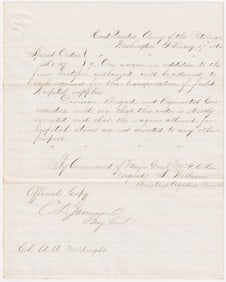 Head Quarters Army of the Potomac
Washington February 17th 186
Special Orders
No 47 } 2. One wagon in addition to the
four heretofore authorized will be allowed to
each regiment for the transportation of field
Hospital supplies
Division Brigade and Regimental Com-
manders will see that this order is strictly
executed and that the wagons allowed for
hospital stores are not diverted to any other
purpose
By Command of Major Genl McClellan
(signed) S. Williams
Assistant Adjutant General
Official Copy
C. D. Jameson
Brig Genl
Col. A. A. McKnight